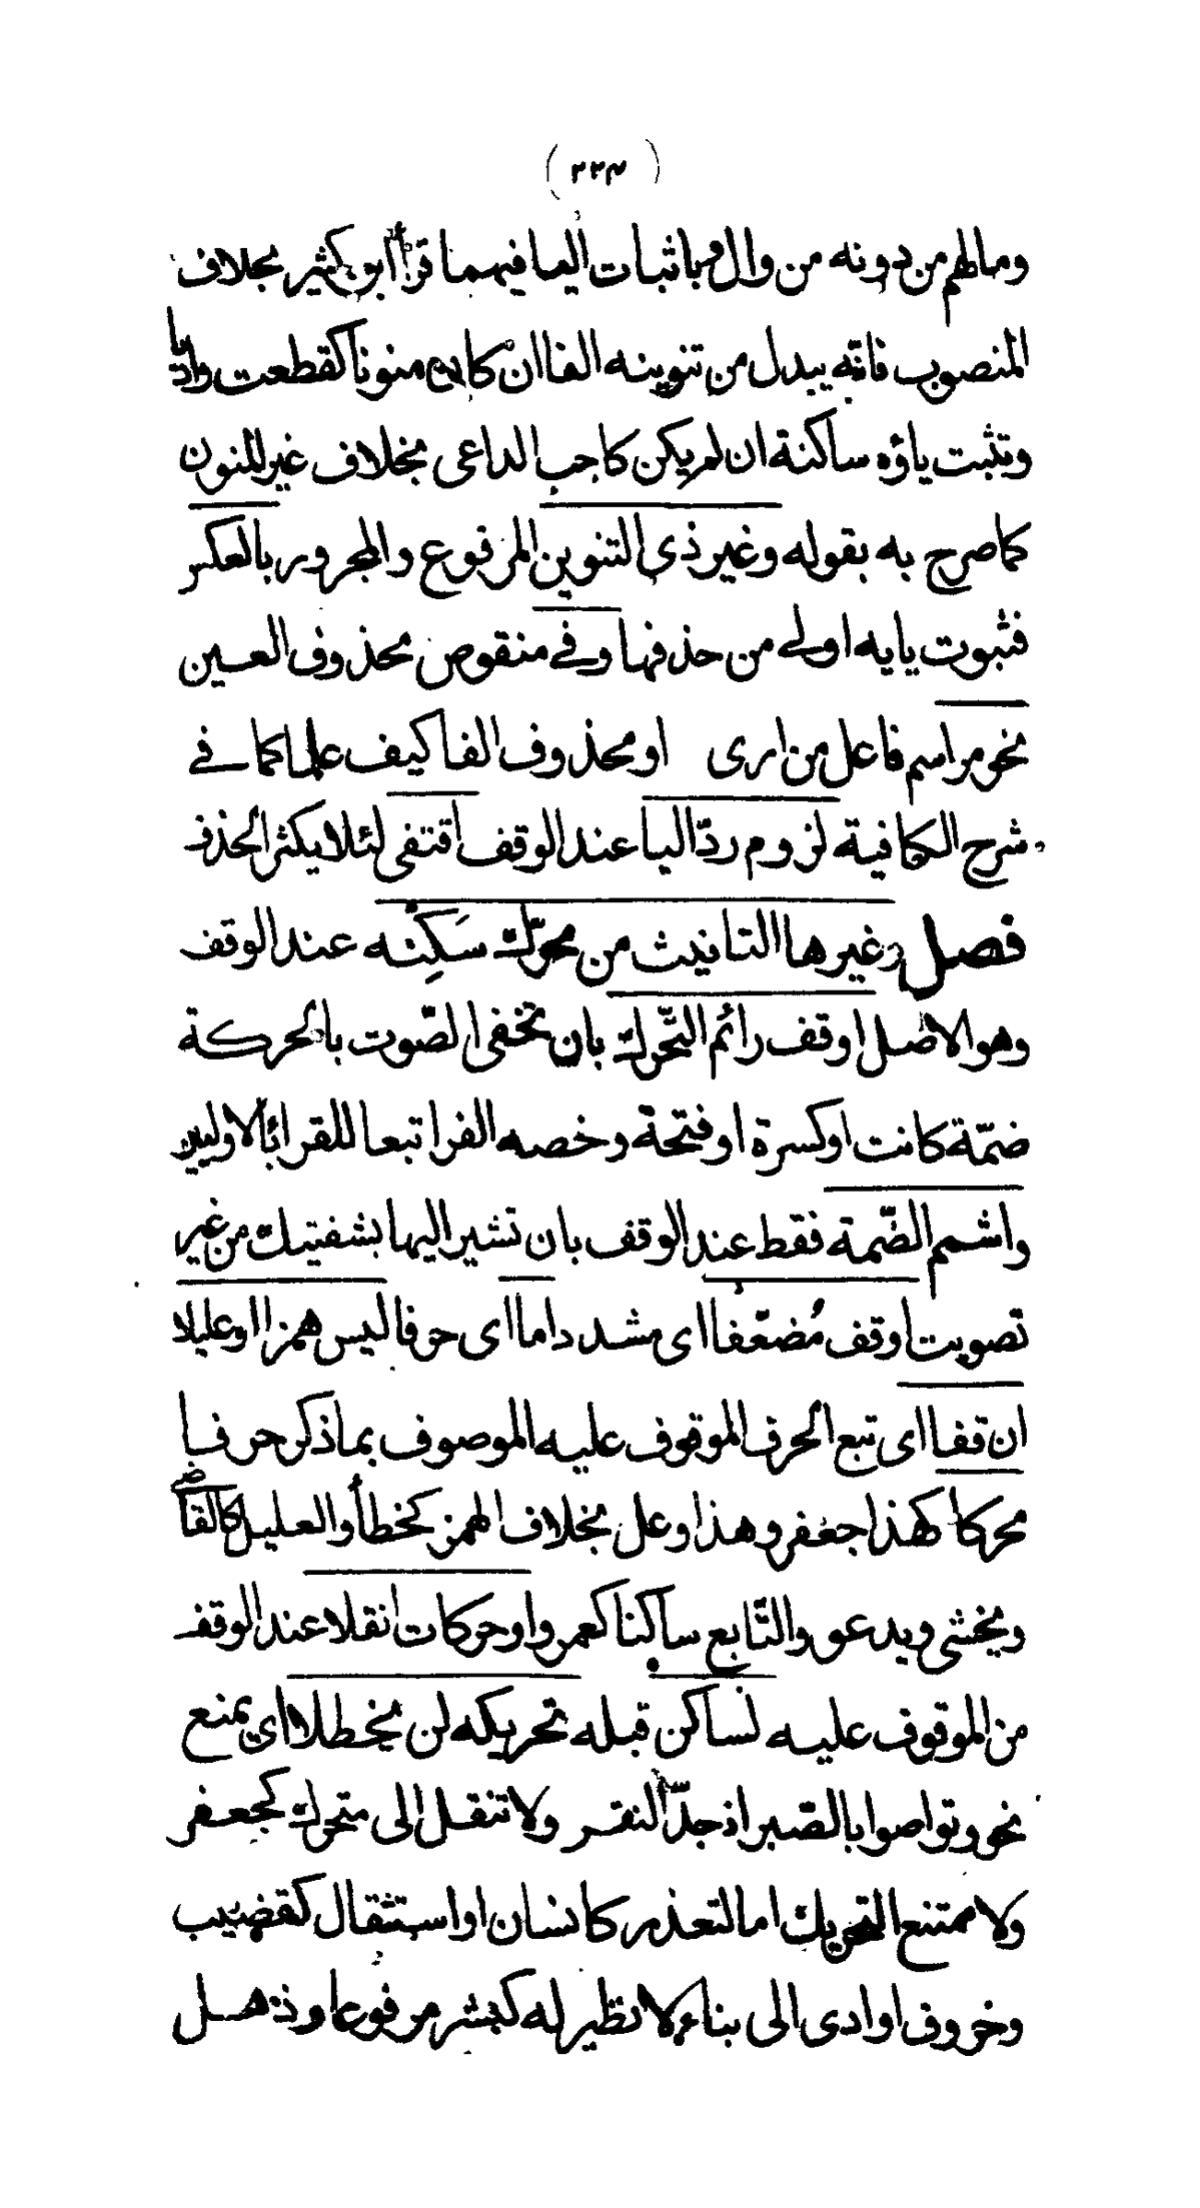 (٢٢٤)
ومالهم من دونه من وال وباثبات اليا فيهما قرأ ابن كثير بخلاف
المنصوب فانّه يبدل من تنوينه الفا ان كان منونا كقطعت واديا
وتثبت ياؤه ساكنة ان لم يكن كاجب الداعى بخلاف غير المنون
كما صرح به بقوله وغير ذى التنوين المرفوع والمجرور بالعكس
فثبوت يايه اولے من حذفها وفے منقوص محذوف العين
نحو مر اسم فاعل من ارى او محذوف الفا كيف علما كما فے
شرح الكافية لزوم ردّ اليا عند الوقف اقتفى لئلا يكثر الحذف
فصل وغيرها التانيث من محرّك سَكِّنْه عند الوقف
وهو الاصل اوقف رائم التّحرك بان تخفى الصّوت بالحركة
ضمّة كانت اوكسرة اوفتحة وخصه الفرا تبعا للقرا بالاوليين
واشمم الضّمة فقط عند الوقف بان تشير اليها بشفتيك من غير
تصويت اوقف مُضعّفا اى مشددا ما اى حرفا ليس همزا اوعليلا
ان قفا اى تبع الحرف الموقوف عليه الموصوف بما ذكر حرفا
محركا كهذا جعفر وهذا وعل بخلاف الهمز كخطأ والعليل كالقاضى
ويخشى ويدعو والتّابع ساكنا كعمرو اوحركات انقلا عند الوقف
من الموقوف عليه لساكن قبله تحريكه لن يخطلا اى يمنع
نحو وتواصوا بالصّبر اذ جدّ النقر ولا تنقل الى متحرك كجعفر
ولا ممتنع التحريك اما لتعذر كانسان او استثقال كقضيب
وخروف اوادى الى بناء لا نظير له كبشر مرفوعا وذهل